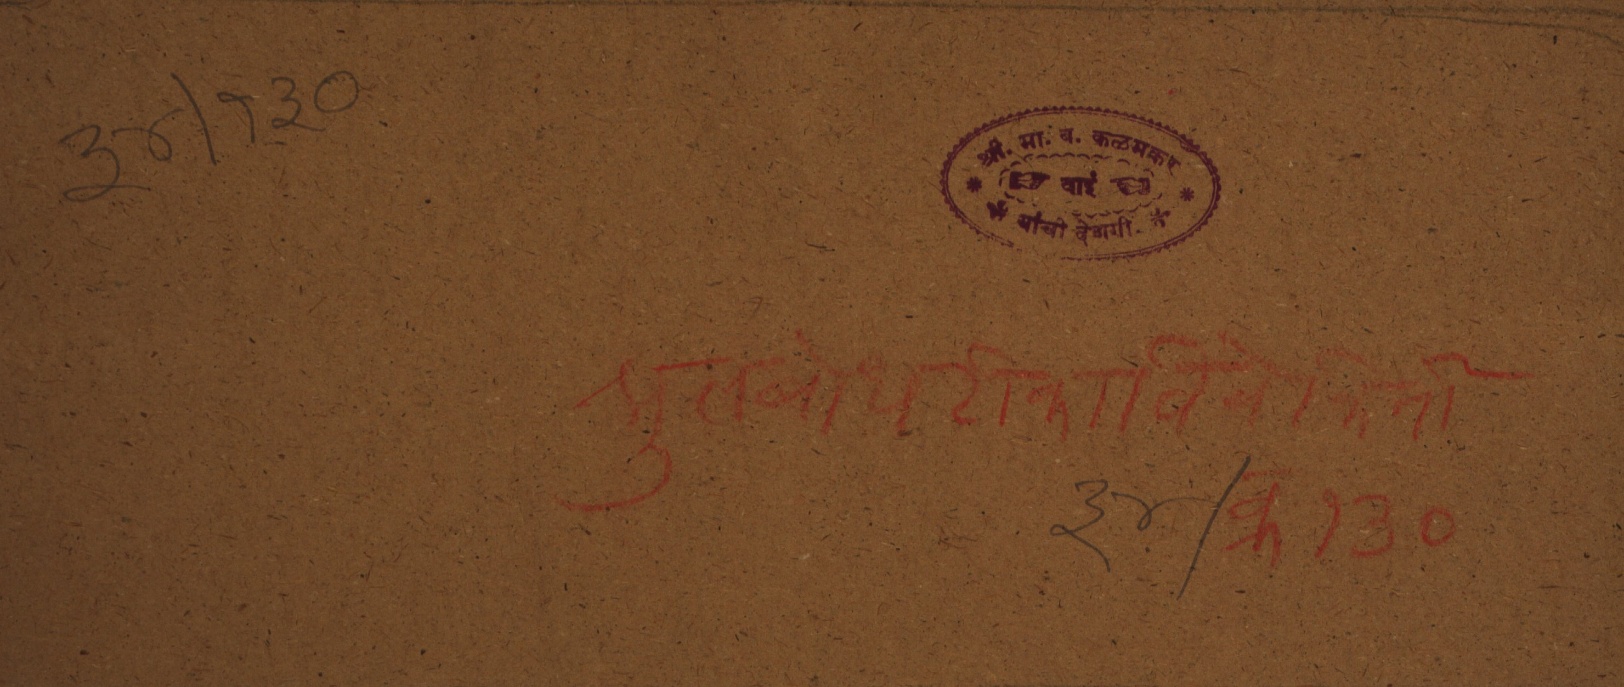 ३४/१३०
श्री. मा. व. कळमकर
वाई
यांची देणगी.
श्रुतबोधटीकाविवेकिनी
३४/क्र १३०